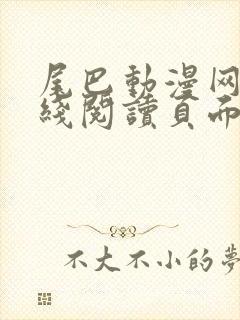 尾巴動漫网
綫閱讀頁面
不大不小的夢